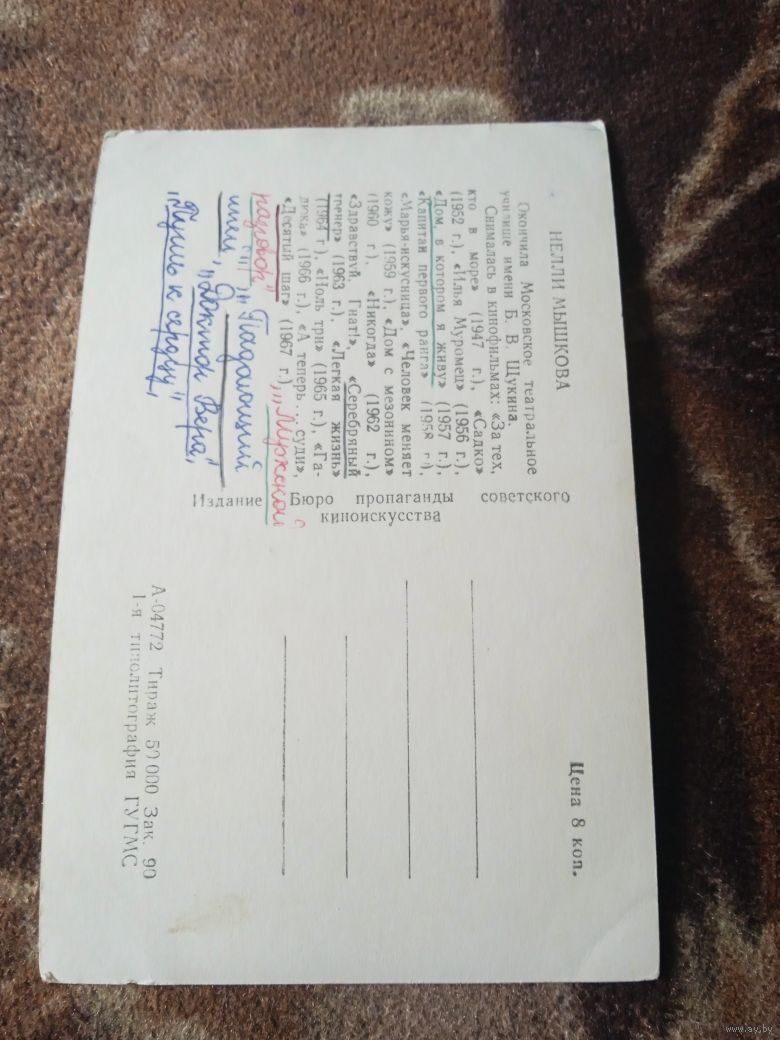 НЕЛЛИ МЫШКОВА
Окончила Московское театральное
училище имени Б. В. Щукина.
Снималась в кинофильмах: «За тех,
кто в море» (1947 г.), «Садко»
(1952 г.), «Илья Муромец» (1956 г.),
«Дом, в котором я живу» (1957 г.),
«Капитан первого ранга» (1958 г.),
«Марья-искусница», «Человек меняет
кожу» (1959 г.), «Дом с мезонином»
(1960 г.), «Никогда» (1962 г.),
«Здравствуй Гнат!», «Серебряный
тренер» (1963 г.), «Легкая жизнь»
(1964 г.), «Ноль три» (1965 г.), «Га-
дюка» (1966 г.), «А теперь... суди»,
«Десятый шаг» (1967 г.), „Мужской
разговор"
„Падающий
иней",
„Доктор Вера",
„Путь к сердцу",
Издание Бюро пропаганды советского
киноискусства
Цена 8 коп.
А-04772 Тираж 50 000 Зак. 90
1-я типолитография ГУГМС
www.ay.by